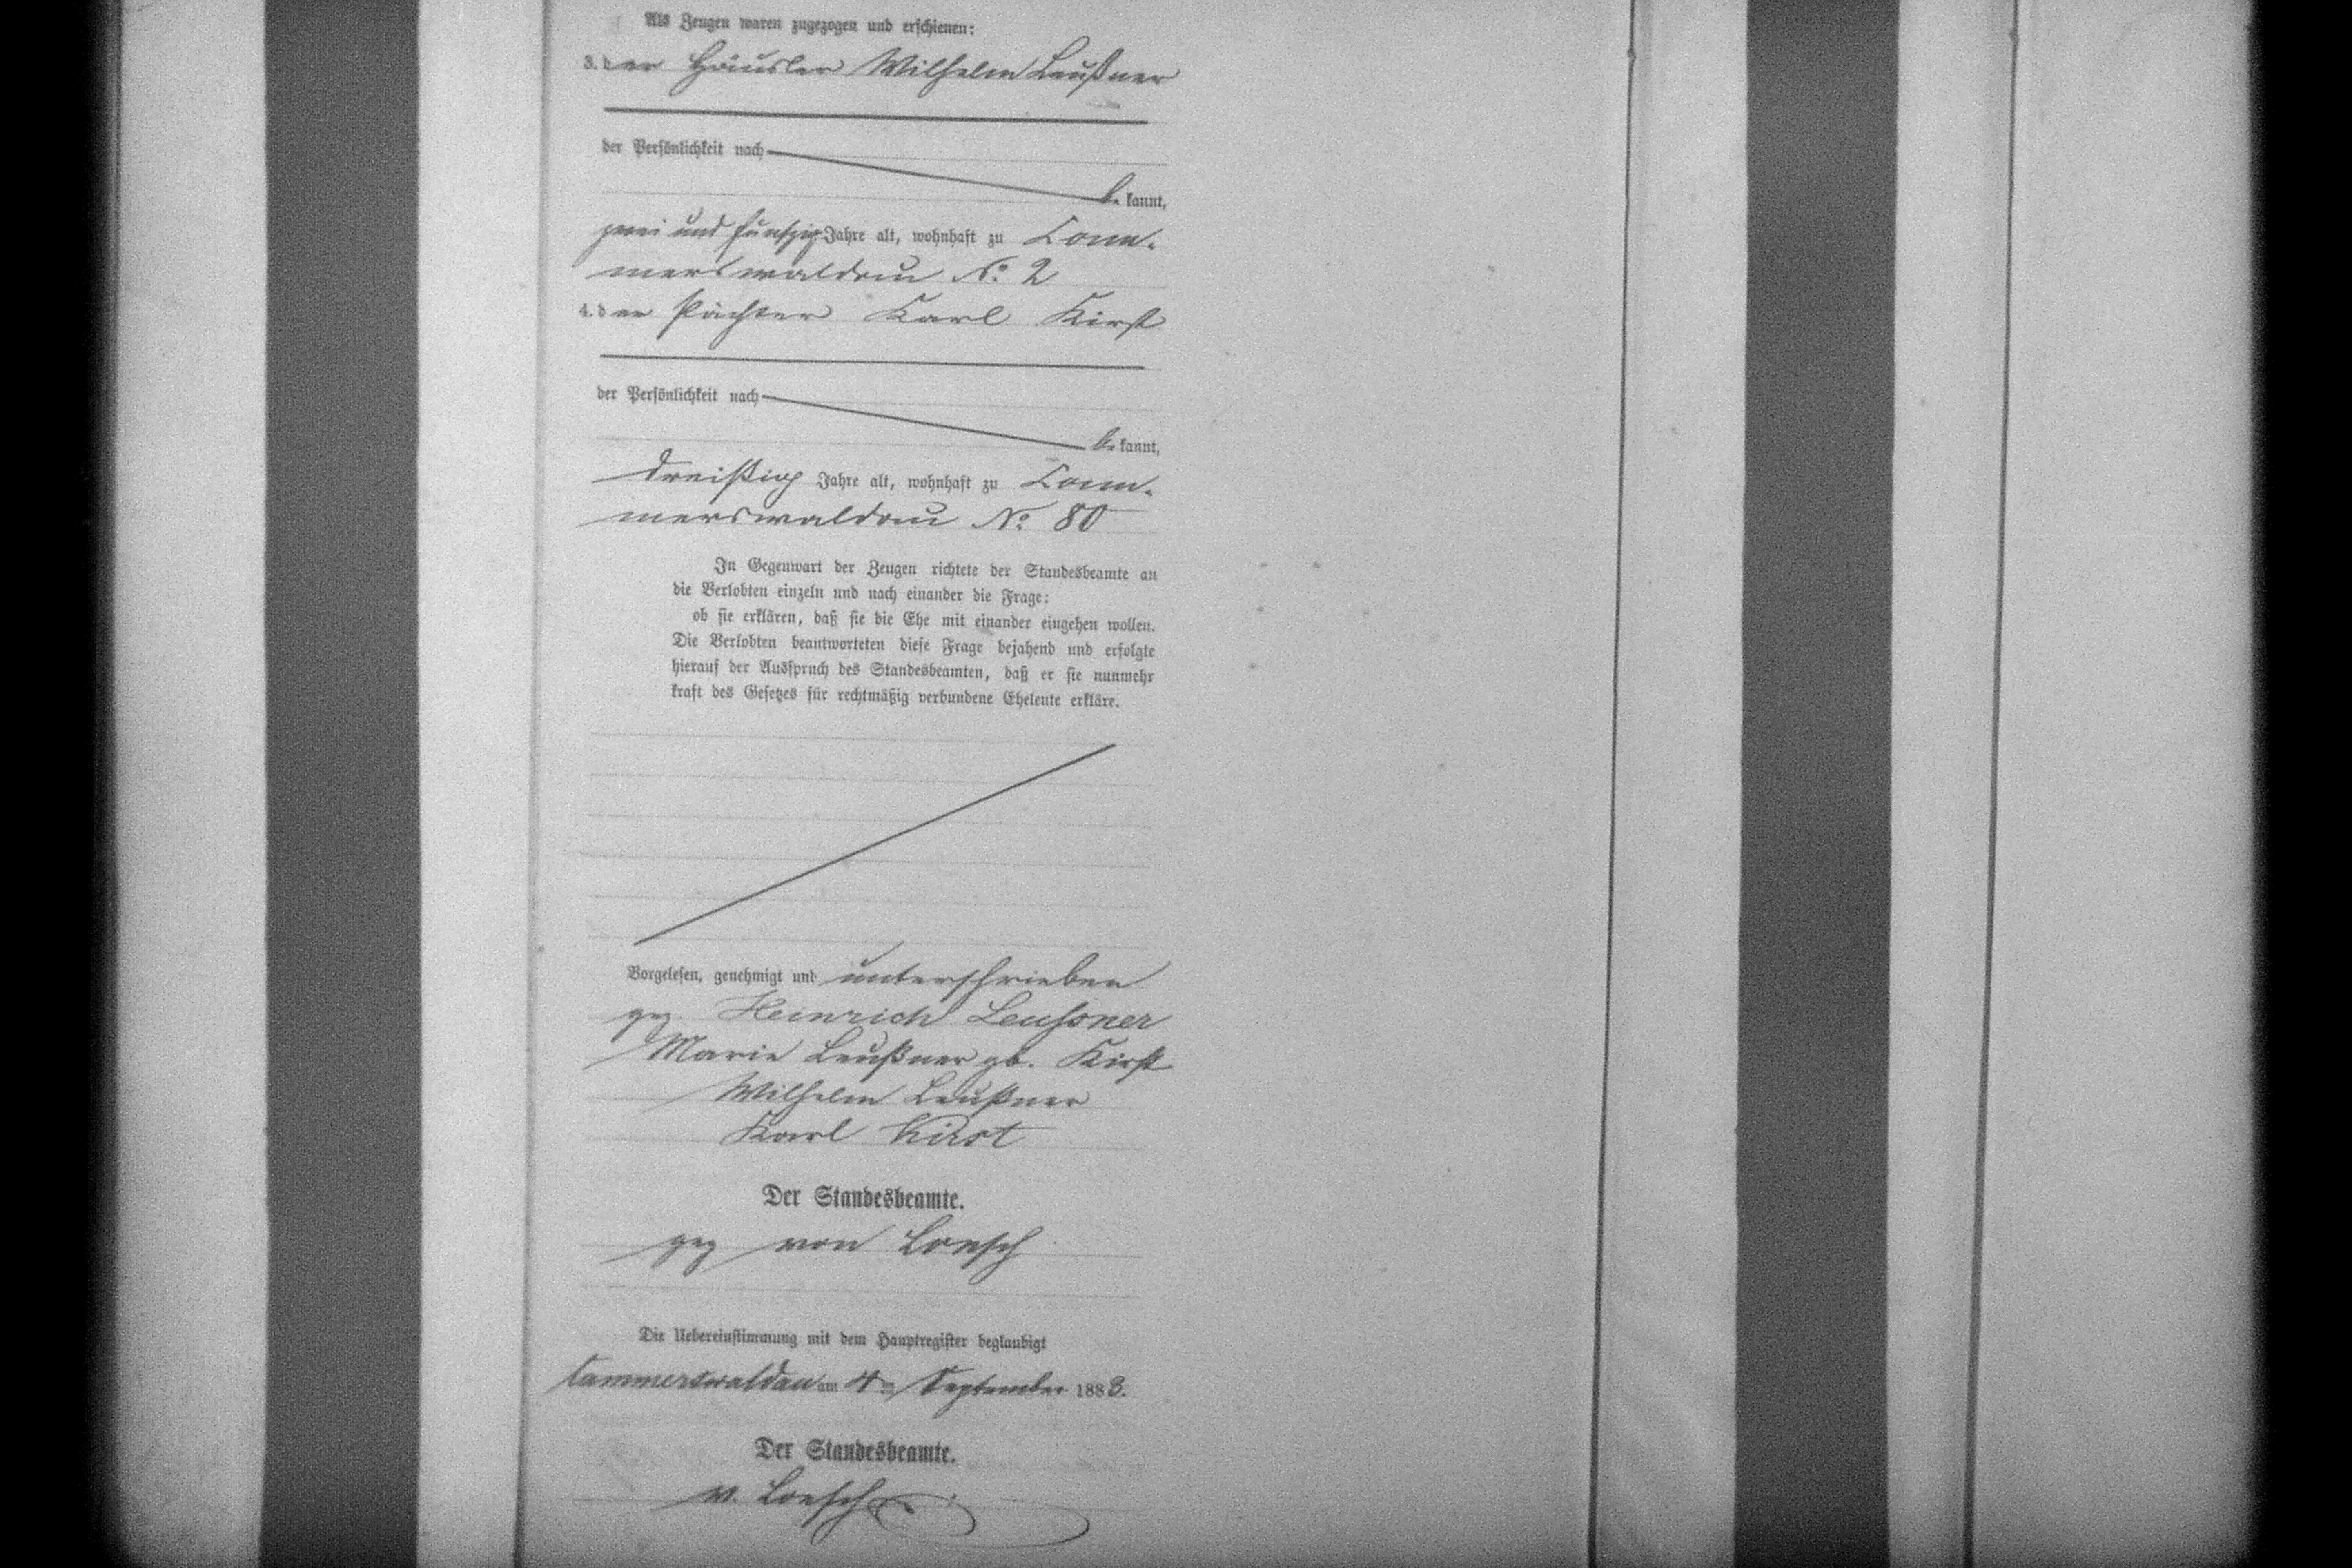 Als Zeugen waren zugezogen und erschienen:
3. der Häusler Wilhelm Leußner
der Persönlichkeit nach
be kannt,
zwei und fünfzig Jahre alt, wohnhaft zu Kam-
merswaldau No. 2
4. der Pächter Karl Kirst
der Persönlichkeit nach
be kannt,
dreißig Jahre alt, wohnhaft zu Kam-
merswaldau No. 80
In Gegenwart der Zeugen richtete der Standesbeamte an
die Verlobten einzeln und nach einander die Frage:
ob sie erklären, daß sie die Ehe mit einander eingehen wollen.
Die Verlobten beantworteten diese Frage bejahend und erfolgte
hierauf der Ausspruch des Standesbeamten, daß er sie nunmehr
kraft des Gesetzes für rechtmäßig verbundene Eheleute erkläre.
Vorgelesen, genehmigt und unterschrieben
gez Heinrich Leussner
Marie Leußner gb. Kirst
Wilhelm Leußner
Karl Kirst
Der Standesbeamte.
gez von Loesch
Die Uebereinstimmung mit dem Hauptregister beglaubigt
Kammerswaldau am 4ten September 1883.
Der Standesbeamte.
v. Loesch